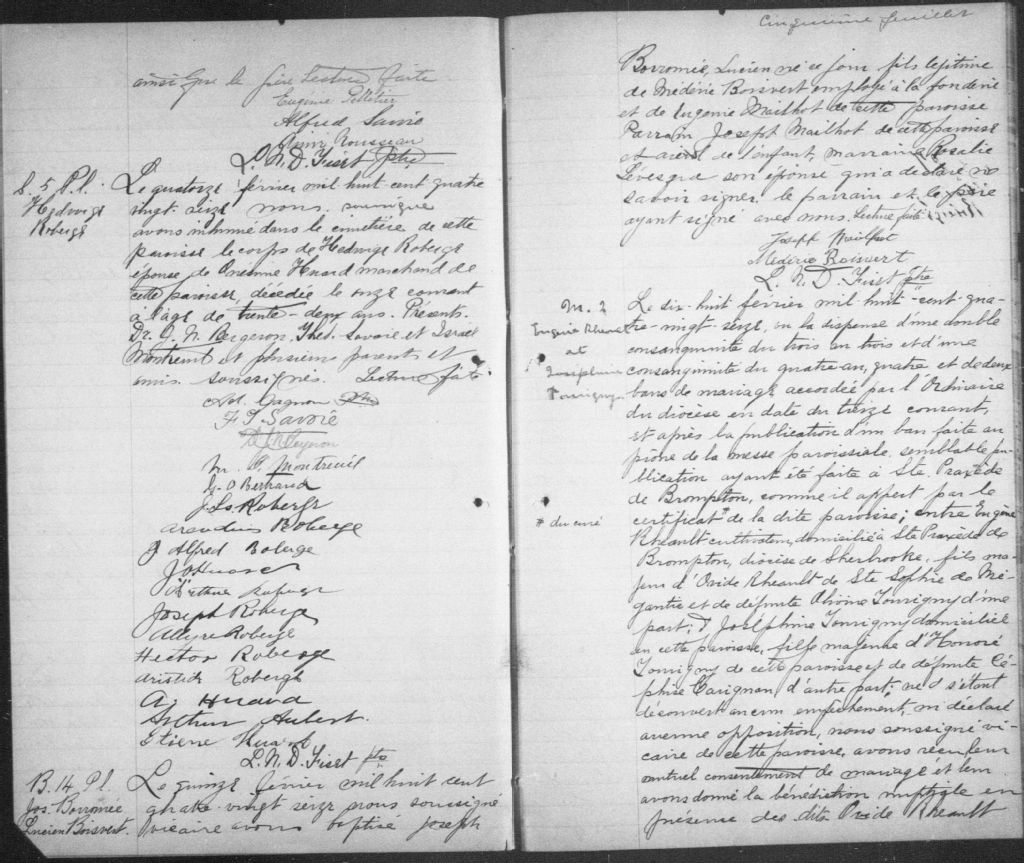 ainsi que le père Lecture faite.
Eugénie Pelletier
Alfred Savoie
Rousseau
L. N. D. Fiset Ptre
S. 5 Pl.
Hedwige
Roberge
Le quatorze février mil huit cent quatre
vingt seize nous soussigné
avons inhumé dans le cimetière de cette
paroisse le corps de Hedwige Roberge
épouse de Onésime Huard marchand de
cette paroisse, décédée le onze courant
à l'âge de trente-deux ans. Présents.
Dr. J. N. Bergeron, Thé. Savoie et Israel
Montreuil et plusieurs parents et
amis soussignés. Lecture faite.
Ad. Gagnon Ptre
F. T. Savoie
M. O. Montreuil
G. O Bertrand
J. Ls. Roberge
Roberge
J Alfred Roberge
J O Huard
Arthur
Joseph Roberge
Allyre Roberge
Hector Roberge
Aristide Roberge
A. Huard
Arthur Hubert.
Etiene Huard
L. N. D. Fiset Ptre
B. 14 Pl.
Jos. Borromée
Lucien Boisvert.
Le quinze février mil huit cent
quatre-vingt seize nous soussigné
vicaire avons baptisé Joseph
Cinquième feuillet
Borromée, Lucien né ce jour fils légitime
de Médéric Boisvert employé à la fonderie
et de Eugenie Mailhot de cette paroisse
Parrain Joseph Mailhot de cette paroisse
et aieul de l'enfant, marraine Rosalie
Levesque son épouse qui a déclaré ne
savoir signer. le parrain et le père
ayant signé avec nous. Lecture faite
Joseph Mailhot
Médéric Boisvert
L. N. D. Fiset Ptre
M. 2
Eugène Rheault
et
Josephine
Tourigny
Le dix-huit février mil huit-cent-qua-
tre-vingt-seize, vu la dispense d'une double
consanguinité du trois au trois et d'une
consanguinité du quatre au quatre et de deux
bans de mariage accordée par l'Ordinaire
du diocèse en date du treize courant,
et après la publication d'un ban faite au
prône de la messe paroissiale. semblable pu-
blication ayant été faite à Ste. Praxède
de Brompton, comme il appert par le
certificat # de la dite paroisse; entre Eugène
# du curé
Rheault cultivateur, domicilié à Ste Praxède de
Brompton, diocèse de Sherbrooke, fils ma-
jeur d'Ovide Rheault de Ste Sophie de Mé-
gantic et de défunte Olivine Tourigny d'une
part; & Joséphine Tourigny domiciliée
en cette paroisse, fille majeure d'Honoré
Tourigny de cette paroisse et de défunte Cé-
phise Carignan, d'autre part; ne s'étant
découvert aucun empêchement, ni déclaré
aucune opposition, nous soussigné vi-
caire de cette paroisse, avons reçu leur
mutuel consentement de mariage et leur
avons donné la bénédiction nuptiale en
présence des dits Ovide Rheault